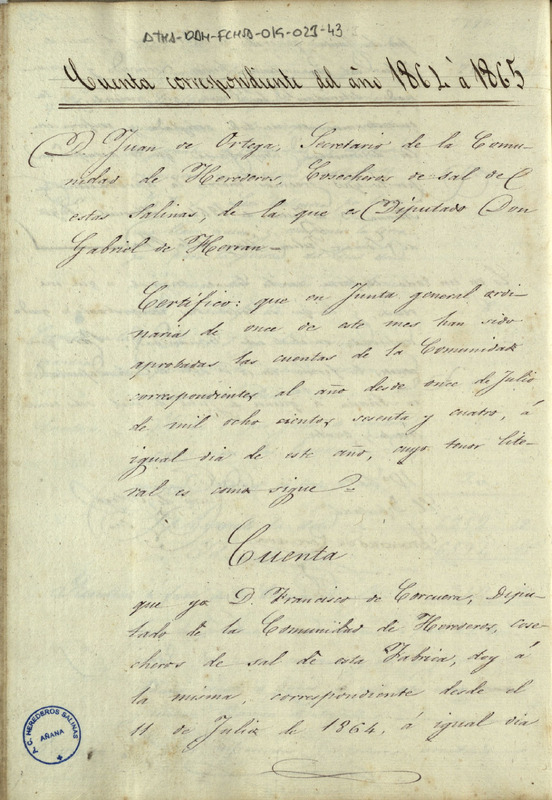 ATHA-DAH-FCHSA-016-023-43
Cuenta correspondiente del año 1864 á 1865
D. Juan de Ortega, Secretario de la Comu-
nidad de Herederos, Cosecheros de sal de
estas Salinas, de la que es Diputado Don
Gabriel de Herran-
Certifico: que en Junta general ordi-
naria de once de este mes han sido
aprobadas las cuentas de la Comunidad
correspondientes al año desde once de Julio
de mil ocho cientos sesenta y cuatro, á
igual dia de este año, cuyo tenor lite-
ral es como sigue
Cuenta
que yo D. Francisco de Corcuera, Dipu-
tado de la Comunidad de Herederos, cose-
cheros de sal de esta Fabrica, doy á
la misma, correspondiente desde el
11 de Julio de 1864, á igual dia
C. HEREDEROS SALINAS
AÑANA